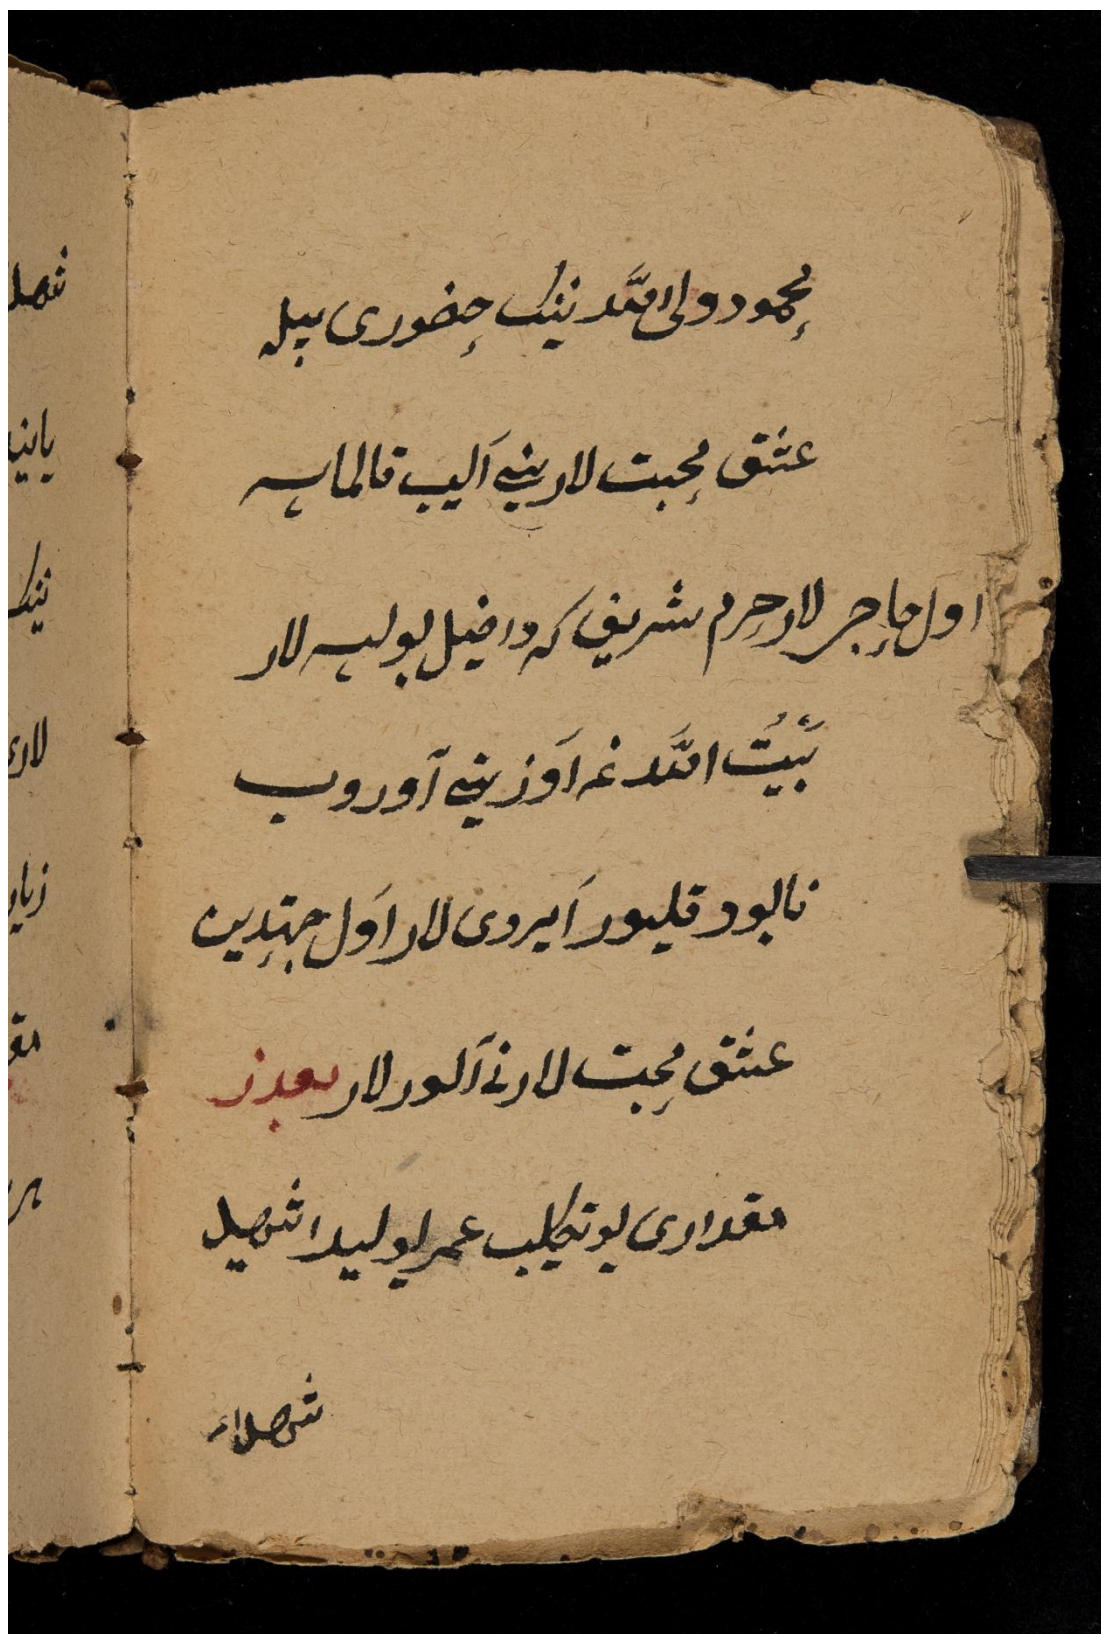 محمود ولی الله نینک حضوری بیله
عشق محبت لارینی آلیب قالماسه
اول حاجر لار حرم شریف که داخیل بولسه لار
بَیتُ الله غه اَوزینی آوروب
نابود قلیور اَیردی لار اَول جهتدین
عشق محبت لارنی آلور لار بعدز
مقداری یوتکلیب عمر لولیدا شهیل
شهلاء